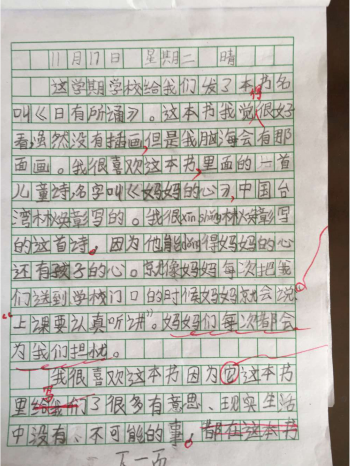 11月17日 星期二 晴
这学期学校给我们发了本书名
叫《日有所诵》。这本书我觉得很好
看,虽然没有插画,但是我脑海会有那
面画。我很喜欢这本书,里面的一首
儿童诗,名字叫《妈妈的心》,中国台
湾林焕彰写的。我很xīn shǎng林焕彰写
的这首诗。因为他懂得妈妈的心
还有孩子的心。就像妈妈每次把我
们送到学校门口的时候妈妈就会说
“上课要认真听讲”。妈妈们每次都会
为我们担忧。
我很喜欢这本书因为它这本书
里写了很多有意思、现实生活
中没有、不可能的事。都在这本书
下一面